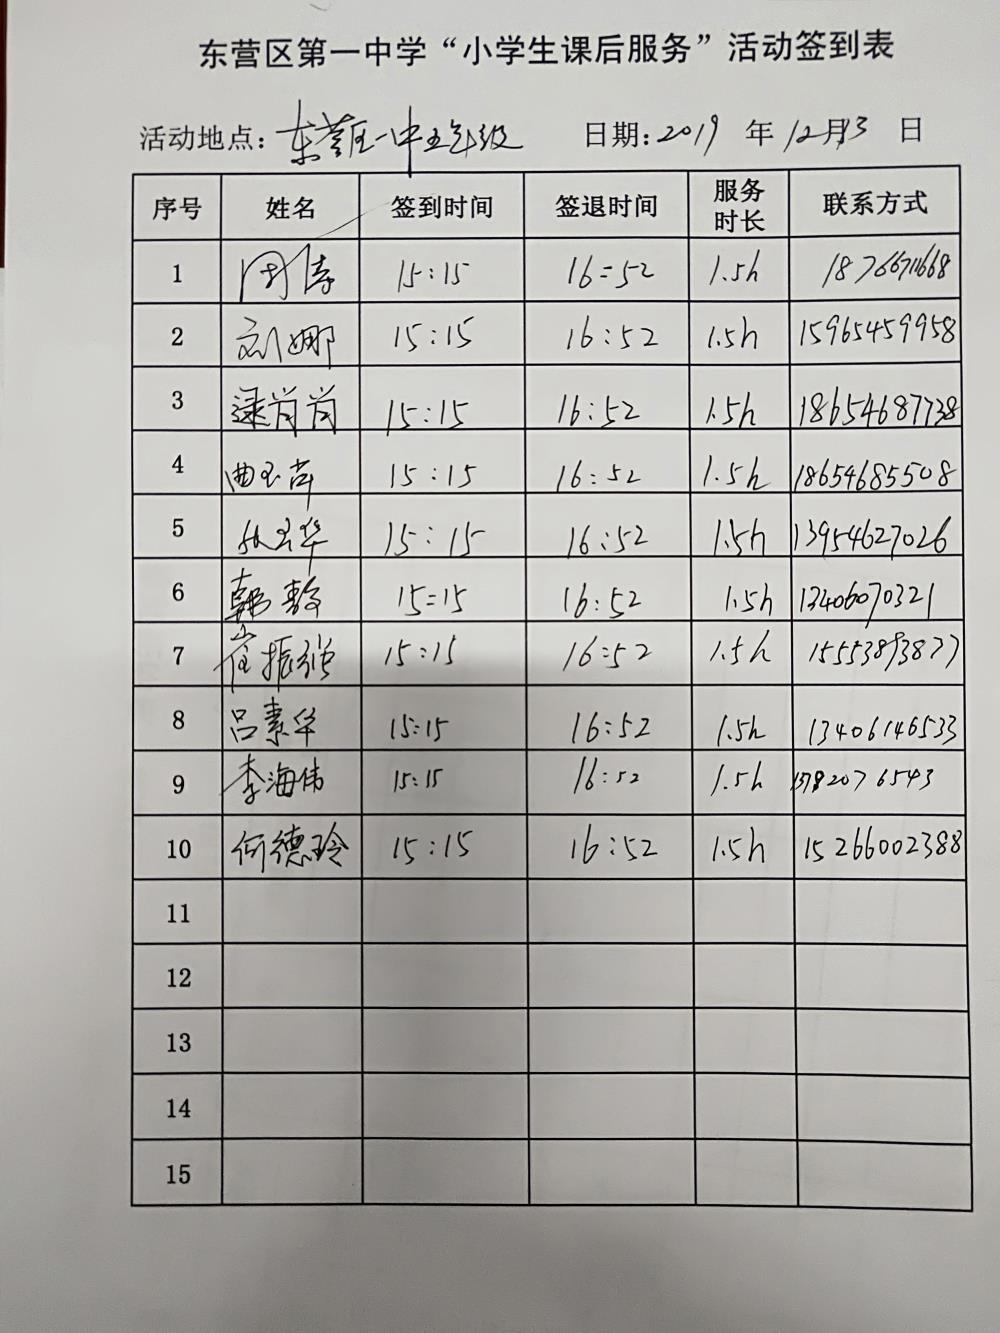 东营区第一中学“小学生课后服务”活动签到表
活动地点：东营区一中五年级 日期：2019 年 12月13 日
序号 姓名 签到时间 签退时间 服务时长 联系方式
1 周涛 15:15 16:52 1.5h
2 刘娜 15:15 16:52 1.5h 15965459958
3 逯肖肖 15:15 16:52 1.5h 18654687738
4 曲玉芹 15:15 16:52 1.5h 18654685508
5 15:15 16:52 1.5h 13954627026
6 韩敖 15:15 16:52 1.5h 13406070321
7 崔振强 15:15 16:52 1.5h 15553893877
8 吕素华 15:15 16:52 1.5h 13406146533
9 李海伟 15:15 16:52 1.5h 13782076543
10 何德玲 15:15 16:52 1.5h 15266002388
11
12
13
14
15